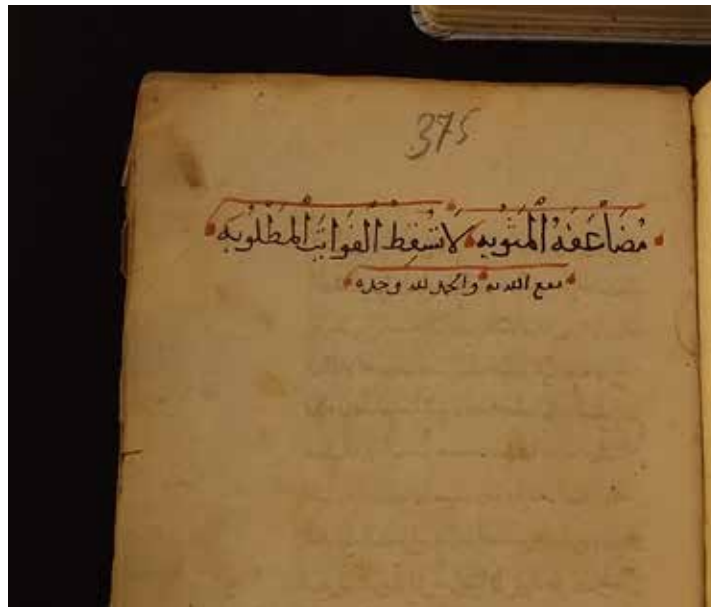 375
مُضَاعَفَةُ الْمَثُوبَه لَا تُسْقِطُ الْفَوَائِتَ الْمَطْلُوبَه
نفع الله به والحمد لله وحده